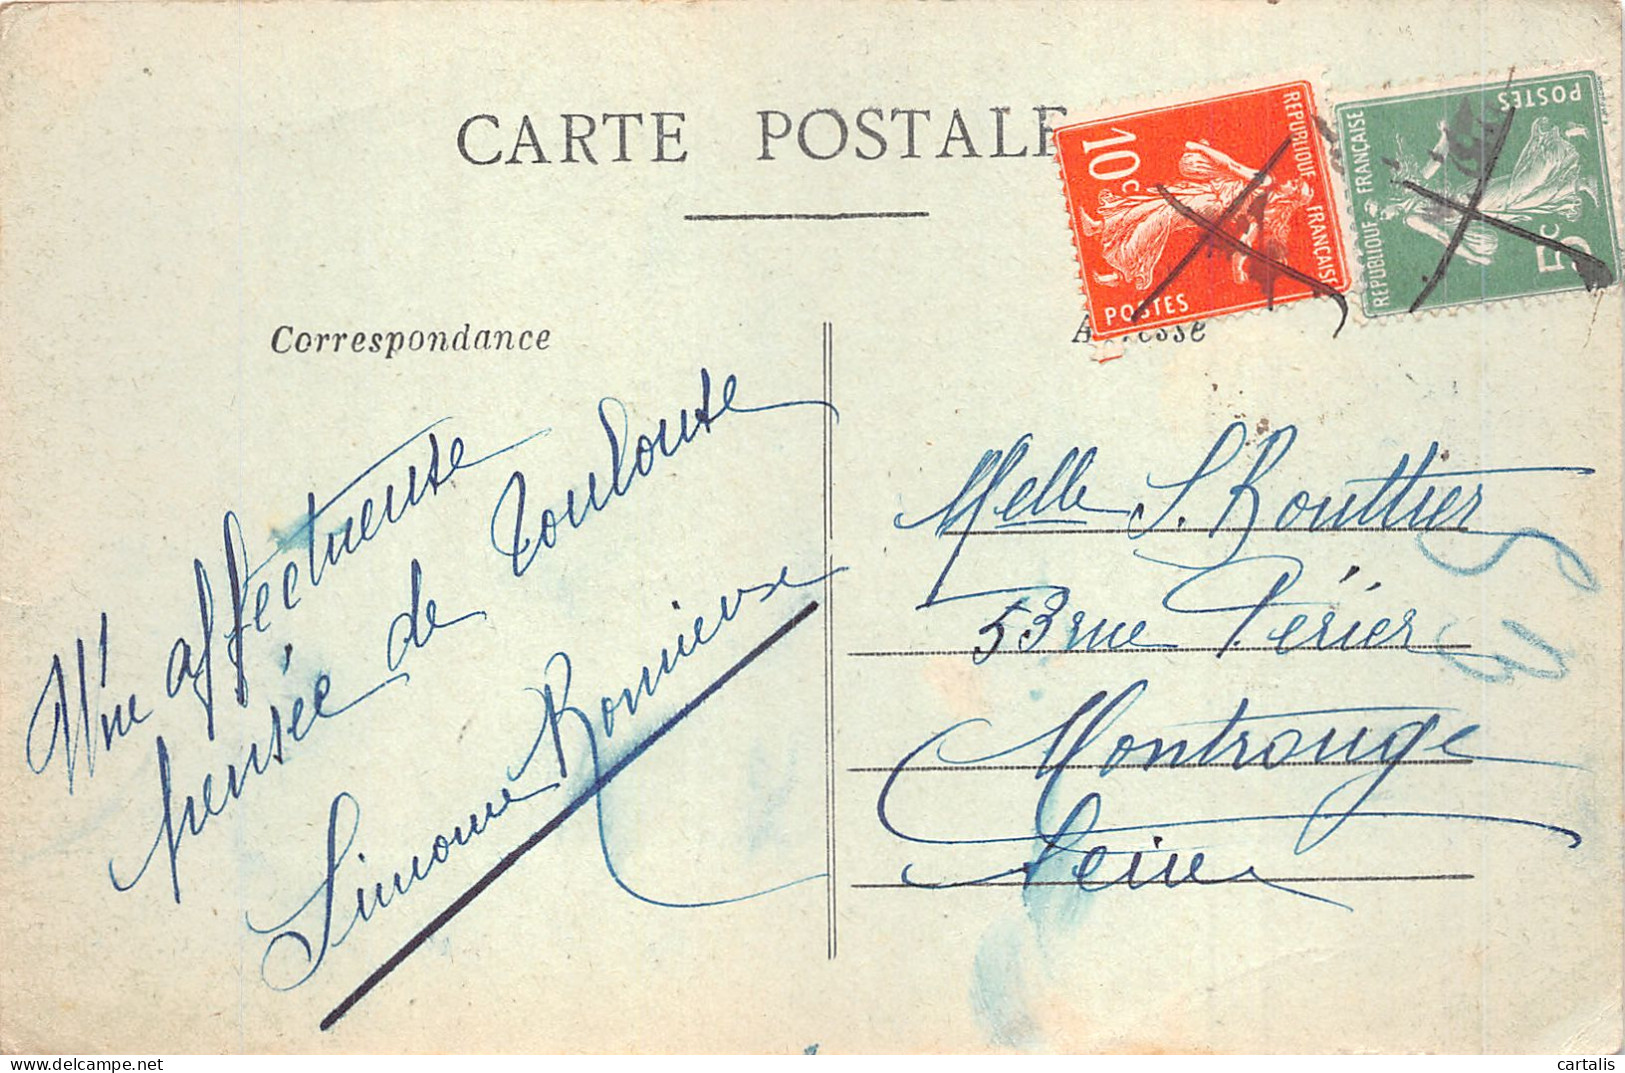 CARTE POSTALE
10c
REPUBLIQUE FRANÇAISE
POSTES
5c
REPUBLIQUE FRANÇAISE
POSTES
Correspondance
Une affectueuse
pensée de Toulouse
Simone
Adresse
Melle S. Routtier
53 rue Périer
Montrouge
Seine
delcampe.net
cartalis